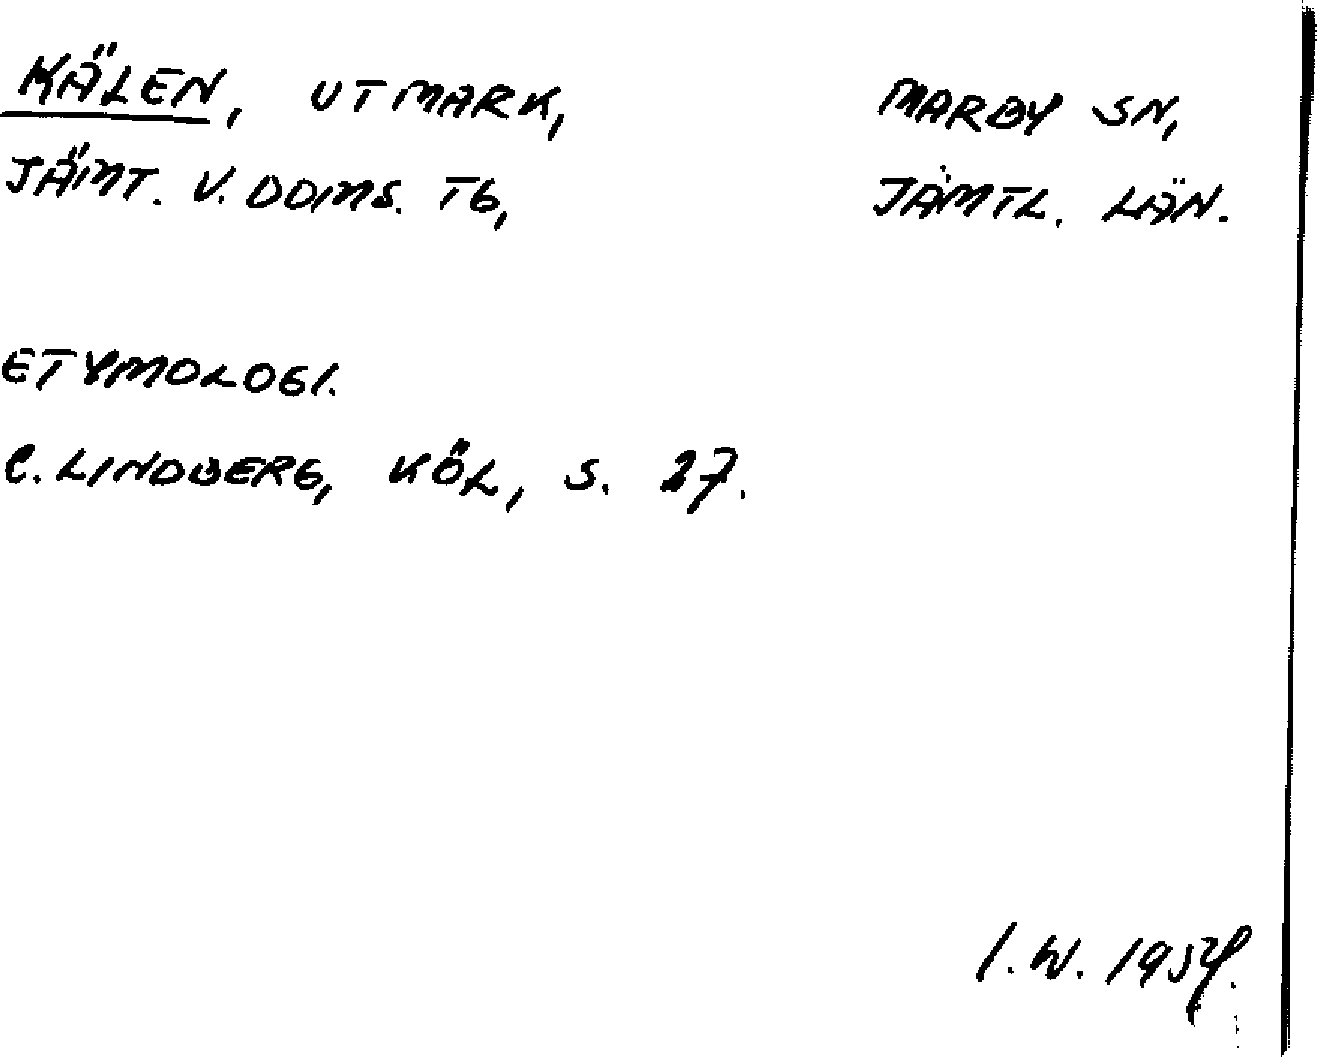 KÄLEN, UTMARK, MARBY SN,
JÄMT. V. DOMS. TG, JÄMTL. LÄN.
ETYMOLOGI.
C. LINDBERG, KÖL, S. 27.
I. W. 1954.